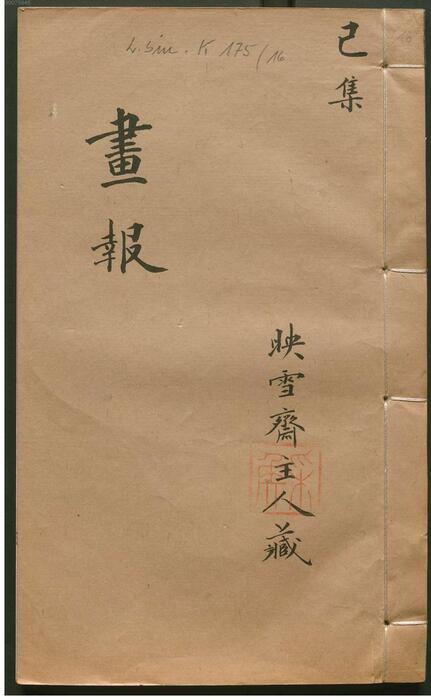 L. sin. K 175/16
16
已集
畫報
映雪齋主人藏